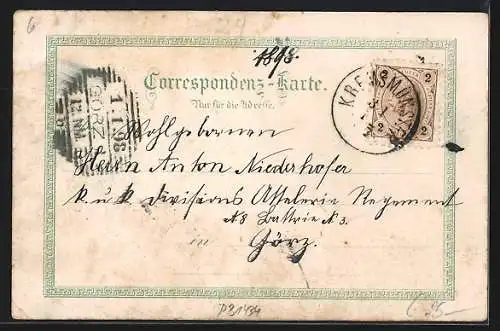 6
1898.
Correspondenz-Karte.
Nur für die Adresse.
2 2
2 2
KREMSMÜNSTER
1.1.98
GÖRZ
Wohlgebornen
Herrn Anton Niederhofer
k u k Divisions Attelerie Regement
N8 Battrie N 3.
in Görz.
35.-